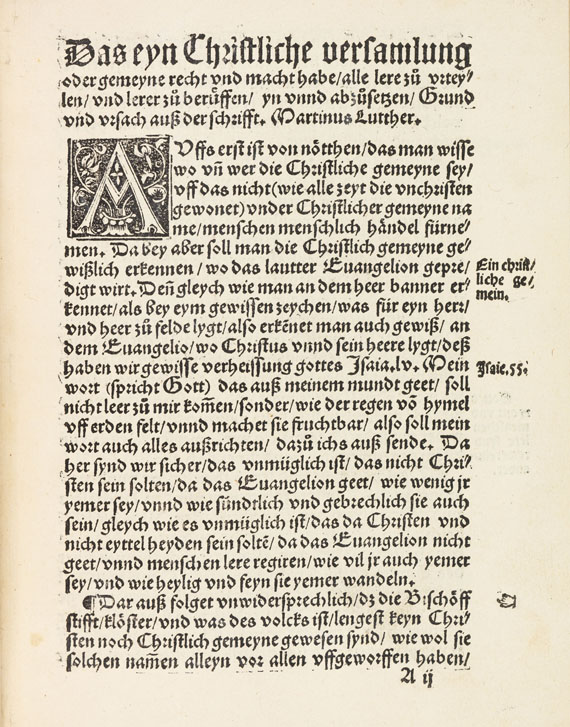 Das eyn Christliche versamlung
oder gemeyne recht vnd macht habe/alle lere zů vrtey⸗
len/ vnd lerer zů berüffen/ yn vnnd abzůsetzen/ Grund
vnd vrsach auß der schrifft. Martinus Lutther.
AVffs erst ist von nötthen/das man wisse
wo vñ wer die Christliche gemeyne sey/
vff das nicht(wie alle zeyt die vnchristen
gewonet)vnder Christlicher gemeyne na
me/menschen menschlich händel fürne⸗
men. Da bey aber soll man die Christlich gemeyne ge⸗
wißlich erkennen/ wo das lautter Euangelion gepre/
digt wirt. Deñ gleych wie man an dem heer banner er⸗
kennet/als bey eym gewissen zeychen/was für eyn herr/
vnd heer zů felde lygt/also erkẽnet man auch gewiß/ an
dem Euangelio/wo Christus vnnd sein heere lygt/deß
haben wir gewisse verheissung gottes Isaia.lv. Mein
wort (spricht Gott) das auß meinem mundt geet/ soll
nicht leer zů mir kom̃en/sonder/wie der regen võ hymel
vff erden felt/vnnd machet sie fruchtbar/ also soll mein
wort auch alles außrichten/ dazů ichs auß sende. Da
her synd wir sicher/das vnmüglich ist/ das nicht Chri⸗
sten sein solten/da das Euangelion geet/ wie wenig jr
yemer sey/vnnd wie sündtlich vnd gebrechlich sie auch
sein/ gleych wie es vnmüglich ist/das da Christen vnd
nicht eyttel heyden sein soltẽ/ da das Euangelion nicht
geet/vnnd menschen lere regiren/ wie vil jr auch yemer
sey/vnd wie heylig vnd feyn sie yemer wandeln.
¶Dar auß folget vnwidersprechlich/dz die Bischöff
stifft/klöster/vnd was des volcks ist/lengest keyn Chri⸗
sten noch Christlich gemeyne gewesen synd/ wie wol sie
solchen nam̃en alleyn vor allen vffgeworffen haben/
A ij
Ein christ/
liche ge/
mein.
Isaie.55.